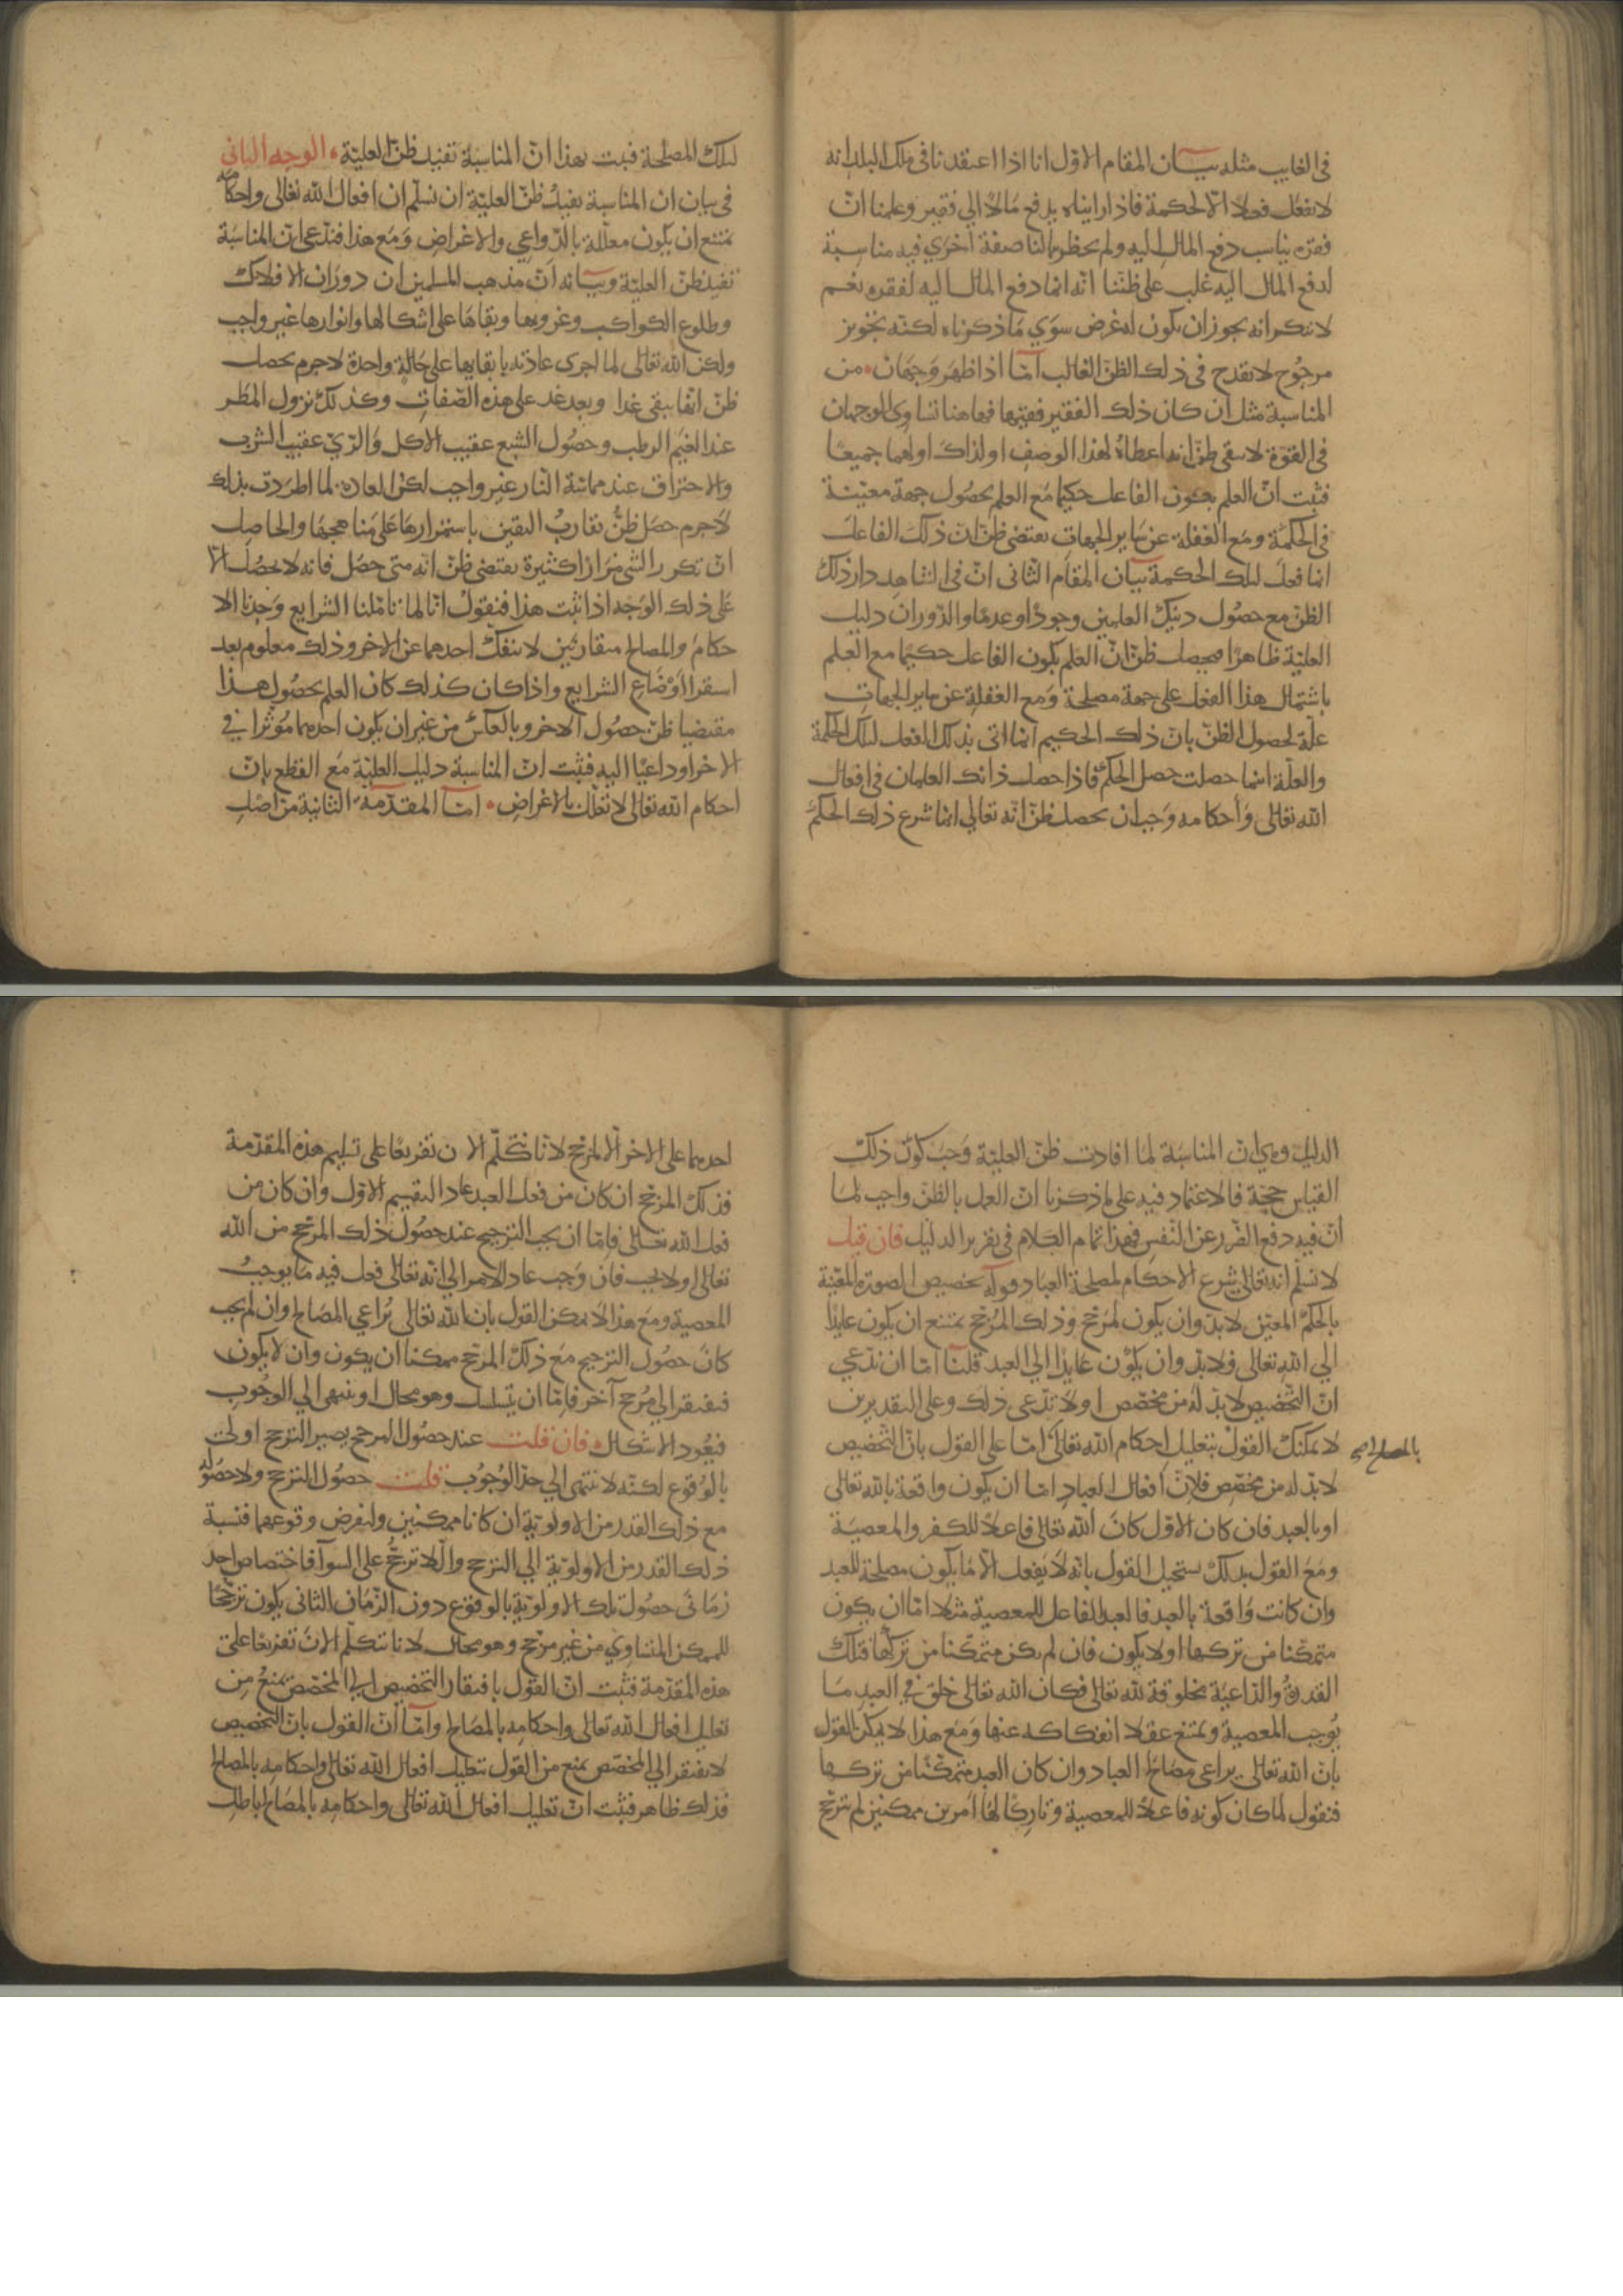 في الغايب مثله بيان المقام الاول انا اذا اعتقدنا في ملك البلد انه
لا يفعل فعلا الا لحكمة فاذا رايناه يدفع مالا الي فقير وعلمنا انّ
فقره يناسب دفع المال اليه ولم يخطر ببالنا صفة اخري فيه مناسبة
لدفع المال اليه غلب على ظننا انه انما دفع المال اليه لفقره نعم
لا ننكر انه يجوز ان يكون له غرض سوي ما ذكرناه لكنه تجويز
مرجوح لا يقدح في ذلك الظن الغالب امّا اذا ظهر وجهان من
المناسبة مثل ان كان ذلك الفقير فقيها فهاهنا تساوي الوجهان
في القوة لا يبقي ظن انه اعطاه لهذا الوصف او لذاك او لهما جميعا
فثبت انّ العلم بكون الفاعل حكيما مع العلم بحصول جهة معيّنة
في الحكمة ومع الغفلة عن ساير الجهات يقتضي ظن ان ذلك الفاعل
انما فعل لتلك الحكمة بيان المقام الثاني انّ في الشاهد دار ذلك
الظن مع حصول ذينك العلمين وجودا وعدما والدوران دليل
العليّة ظاهرا فيحصل ظن انّ العلم بكون الفاعل حكيما مع العلم
باشتمال هذا الفعل على جهة مصلحة ومع الغفلة عن ساير الجهات
علّة لحصول الظن بان ذلك الحكيم انما اتى بذلك الفعل لتلك الحكمة
والعلّة اينما حصلت حصل الحكم فاذا حصل ذانك العلمان في افعال
الله تعالى واحكامه وجب ان يحصل ظن انّه تعالي انما شرع ذلك الحكم
لتلك المصلحة فثبت بهذا انّ المناسبة تفيد ظنّ العليّة الوجه الثاني
في بيان ان المناسبة تفيد ظنّ العليّة ان نسلّم ان افعال الله تعالى واحكامه
يمتنع ان يكون معلّلة بالدواعي والاغراض ومع هذا فندّعي ان المناسبة
تفيد ظن العليّة وبيانه انّ مذهب المسلمين ان دوران الافلاك
وطلوع الكواكب وغروبها وبقاها على اشكالها وانوارها غير واجب
ولكن الله تعالى لما اجري عادته بابقايها على حالة واحدة لا جرم يحصل
ظنّ انها يبقي غدا وبعد غد على هذه الصّفات وكذلك نزول المطر
عند الغيم الرطب وحصول الشبع عقيب الاكل والريّ عقيب الشرب
والاحتراق عند مماسّة النار غير واجب لكن العادة لما اطردت بذلك
لا جرم حصل ظنّ يقارب اليقين باستمرارها على مناهجها والحاصل
انّ تكرر الشي مرارا كثيرة يقتضي ظنّ انّه متى حصل فانه لا يحصل الا
على ذلك الوجه اذا ثبت هذا فنقول انا لما تاملنا الشرايع وجدنا الا
حكام والمصالح متقارنين لا ينفك احدهما عن الاخر وذلك معلوم بعد
استقرا اوضاع الشرايع واذا كان كذلك كان العلم بحصول هذا
مقتضيا ظنّ حصول الاخر وبالعكس من غير ان يكون احدهما مؤثرا في
الاخر او داعيا اليه فثبت انّ المناسبة دليل العليّة مع القطع بانّ
احكام الله تعالى لا تعلّل بالاغراض امّا المقدّمة الثانية من اصل
الدليل وهي ان المناسبة لما افادت ظنّ العليّة وجب كون ذلك
القياس حجّة فالاعتماد فيه على ما ذكرنا انّ العمل بالظن واجب لما
انّ فيه دفع الضّرر عن النّفس فهذا تمام الكلام في تقرير الدليل فان قيل
لا نسلّم انه تعالى شرع الاحكام لمصلحة العباد قوله تخصيص الصورة المعيّنة
بالحكم المعيّن لا بدّ وان يكون لمرجّح وذلك المرجّح يمتنع ان يكون عايدا
الي الله تعالى ولا بد وان يكون عايدا الي العبد قلنا امّا ان ندّعي
انّ التّخصيص لا بدّ له من مخصّص او لا ندّعي ذلك وعلى التقديرين
لا يمكنك القول بتعليل احكام الله تعالى امّا على القول بانّ التّخصيص
بالمصالح
لا بدّ له من مخصّص فلانّ افعال العباد امّا ان يكون واقعة بالله تعالى
او بالعبد فان كان الاول كان الله تعالى فاعلا للكفر والمعصية
ومع القول بذلك يستحيل القول بانّه لا يفعل الا ما يكون مصلحة للعبد
وان كانت واقعة بالعبد فالعبد الفاعل للمعصية مثلا امّا ان يكون
متمكّنا من تركها او لا يكون فان لم يكن متمكّنا من تركها فتلك
القدرة والداعية مخلوقة لله تعالى فكان الله تعالى خلق في العبد ما
يوجب المعصية ويمتنع عقلا انفكاكه عنها ومع هذا لا يمكن القول
بانّ الله تعالى يراعي مصالح العباد وان كان العبد متمكّنا من تركها
فنقول لما كان كونه فاعلا للمعصية وتاركا لها امرين ممكنين لم يترجّح
احدهما على الاخر الّا لمرجّح لانّا نتكلّم الان تفريعا على تسليم هذه المقدّمة
فذلك المرجّح ان كان من فعل العبد عاد التقسيم الاوّل وان كان من
فعل الله تعالى فامّا ان يجب الترجيح عند حصول ذلك المرجّح من الله
تعالى او لا يجب فان وجب عاد الامر الي انّه تعالى فعل فيه ما يوجب
المعصية ومع هذا لا يمكن القول بان الله تعالى يراعي المصالح وان لم يجب
كان حصول الترجيح مع ذلك المرجّح ممكنا ان يكون وان لا يكون
فيفتقر الي مرجّح آخر فامّا ان يتسلسل وهو محال او ينتهي الي الوجوب
فيعود الاشكال فان قلت عند حصول المرجح يصير الترجح اولى
بالوقوع لكنّه لا ينتهي الي حدّ الوجوب قلت حصول الترجح ولا حصوله
مع ذلك القدر من الاولوية ان كانا ممكنين ولنفرض وقوعهما فنسبة
ذلك القدر من الاولويّة الي الترجح واللاترجّح على السوا فاختصاص احد
زماني حصول تلك الاولويّة بالوقوع دون الزّمان الثاني يكون ترجّحا
للممكن المتساوي من غير مرجّح وهو محال لانا نتكلّم الان تفريعا على
هذه المقدّمة فثبت انّ القول بافتقار التخصيص الي المخصّص يمنع من
تعليل افعال الله تعالى واحكامه بالمصالح وامّا انّ القول بانّ التخصيص
لا يفتقر الي المخصّص يمنع من القول بتعليل افعال الله تعالى واحكامه بالمصالح
فذلك ظاهر فثبت انّ تعليل افعال الله تعالى واحكامه بالمصالح باطل